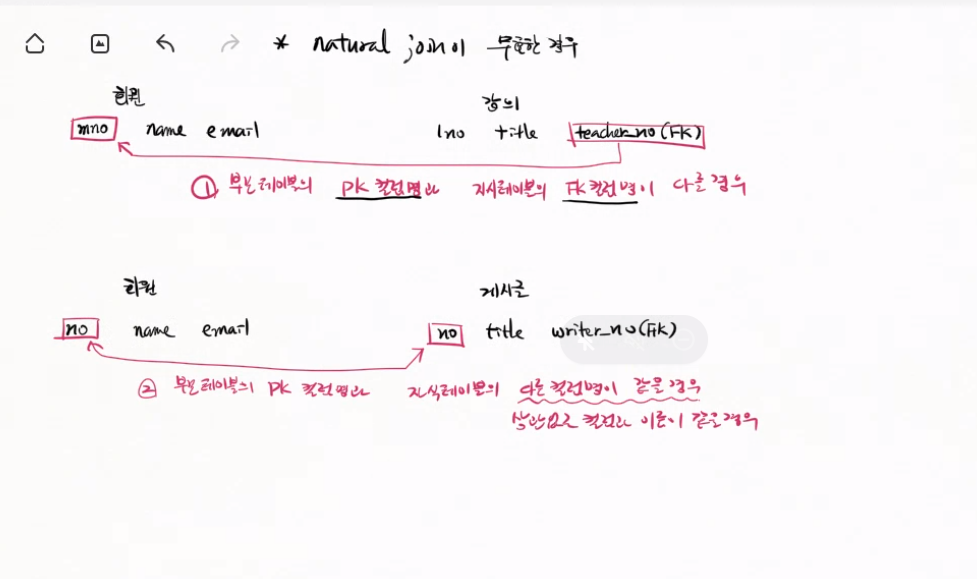 * natural join이 무효한 경우
회원 강의
mno name email lno title teacher_no(FK)
① 부모테이블의 PK 컬럼명과 자식테이블의 FK컬럼명이 다를 경우
회원 게시글
no name email no title writer_no(FK)
② 부모테이블의 PK 컬럼명과 자식테이블의 다른 컬럼명이 같을 경우
상관없는 컬럼과 이름이 같은 경우